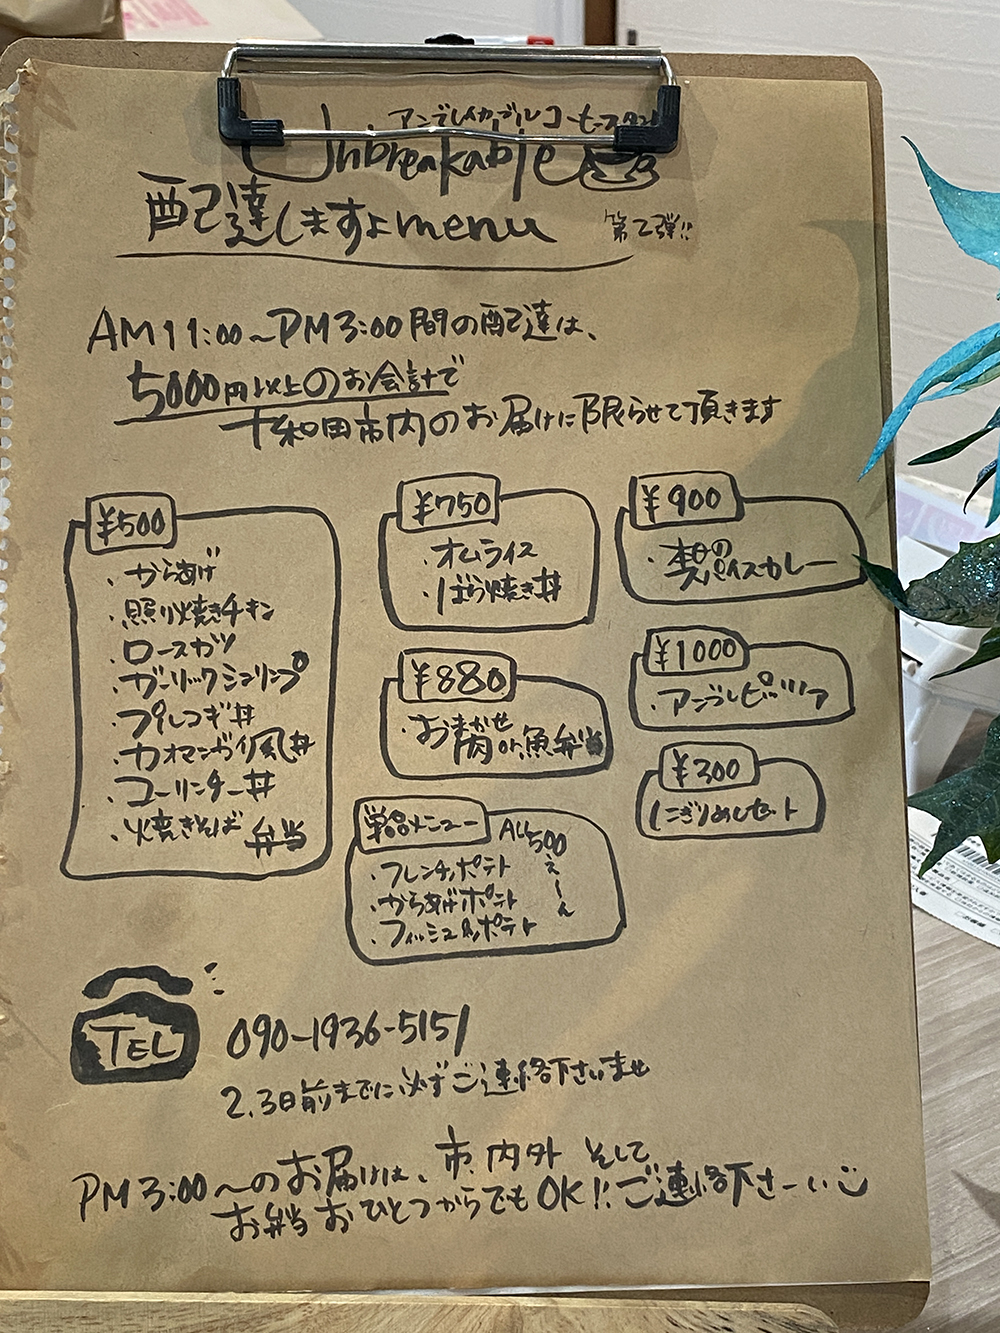 アンブレイカブルコーヒースタンド
Unbreakable
配達しますよmenu 第2弾!!
AM11:00〜PM3:00間の配達は、
5000円以上のお会計で
十和田市内のお届けに限らせて頂きます
¥500
・からあげ
・照り焼きチキン
・ロースカツ
・ガーリックシュリンプ
・プルコギ丼
・カオマンガイ風丼
・ユーリンチー丼
・焼きそば 弁当
¥750
・オムライス
・ばら焼き丼
¥880
・おまかせ
肉or魚弁当
単品メニュー ALL500えーん
・フレンチポテト
・からあげポテト
・フィッシュ&ポテト
¥900
・本日の
スパイスカレー
¥1000
・アンブレピッツァ
¥300
にぎりめしセット
TEL 090-1936-5151
2.3日前までに必ずご連絡下さいませ
PM3:00〜のお届けは、市内外 そして
お弁当おひとつからでもOK!!ご連絡下さーい